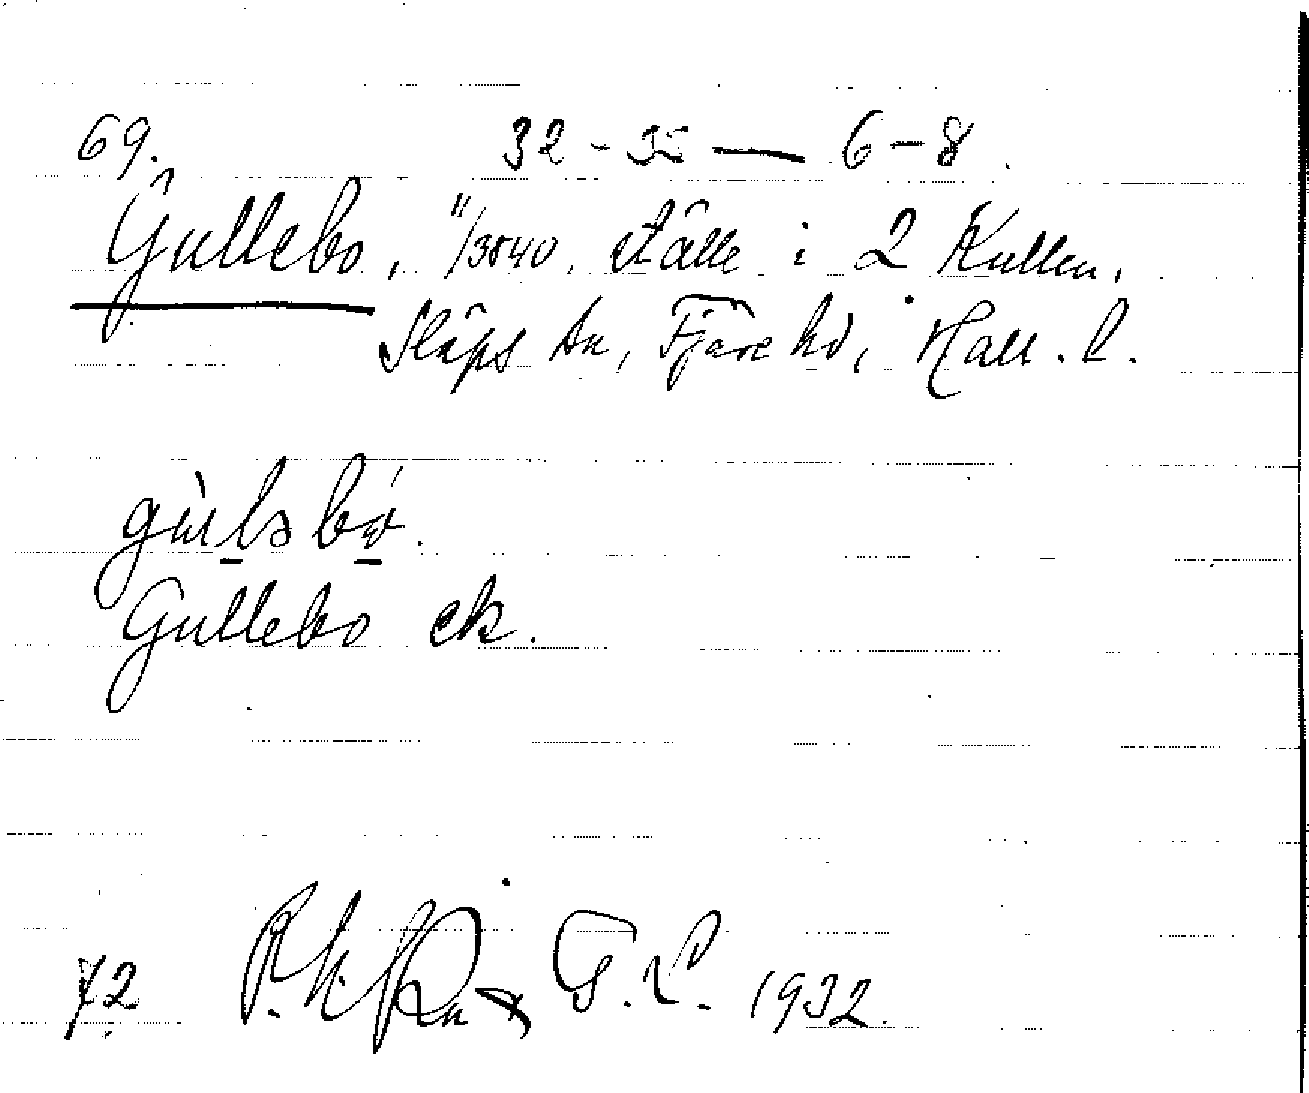 69. 32-35 — 6-8.
Gullebo, 11/3840. ställe i 2 Kullen,
Släps sn, Fjäre hd, Hall. l.
gùləbó.
Gullebo ek.
72 G. L. 1932.